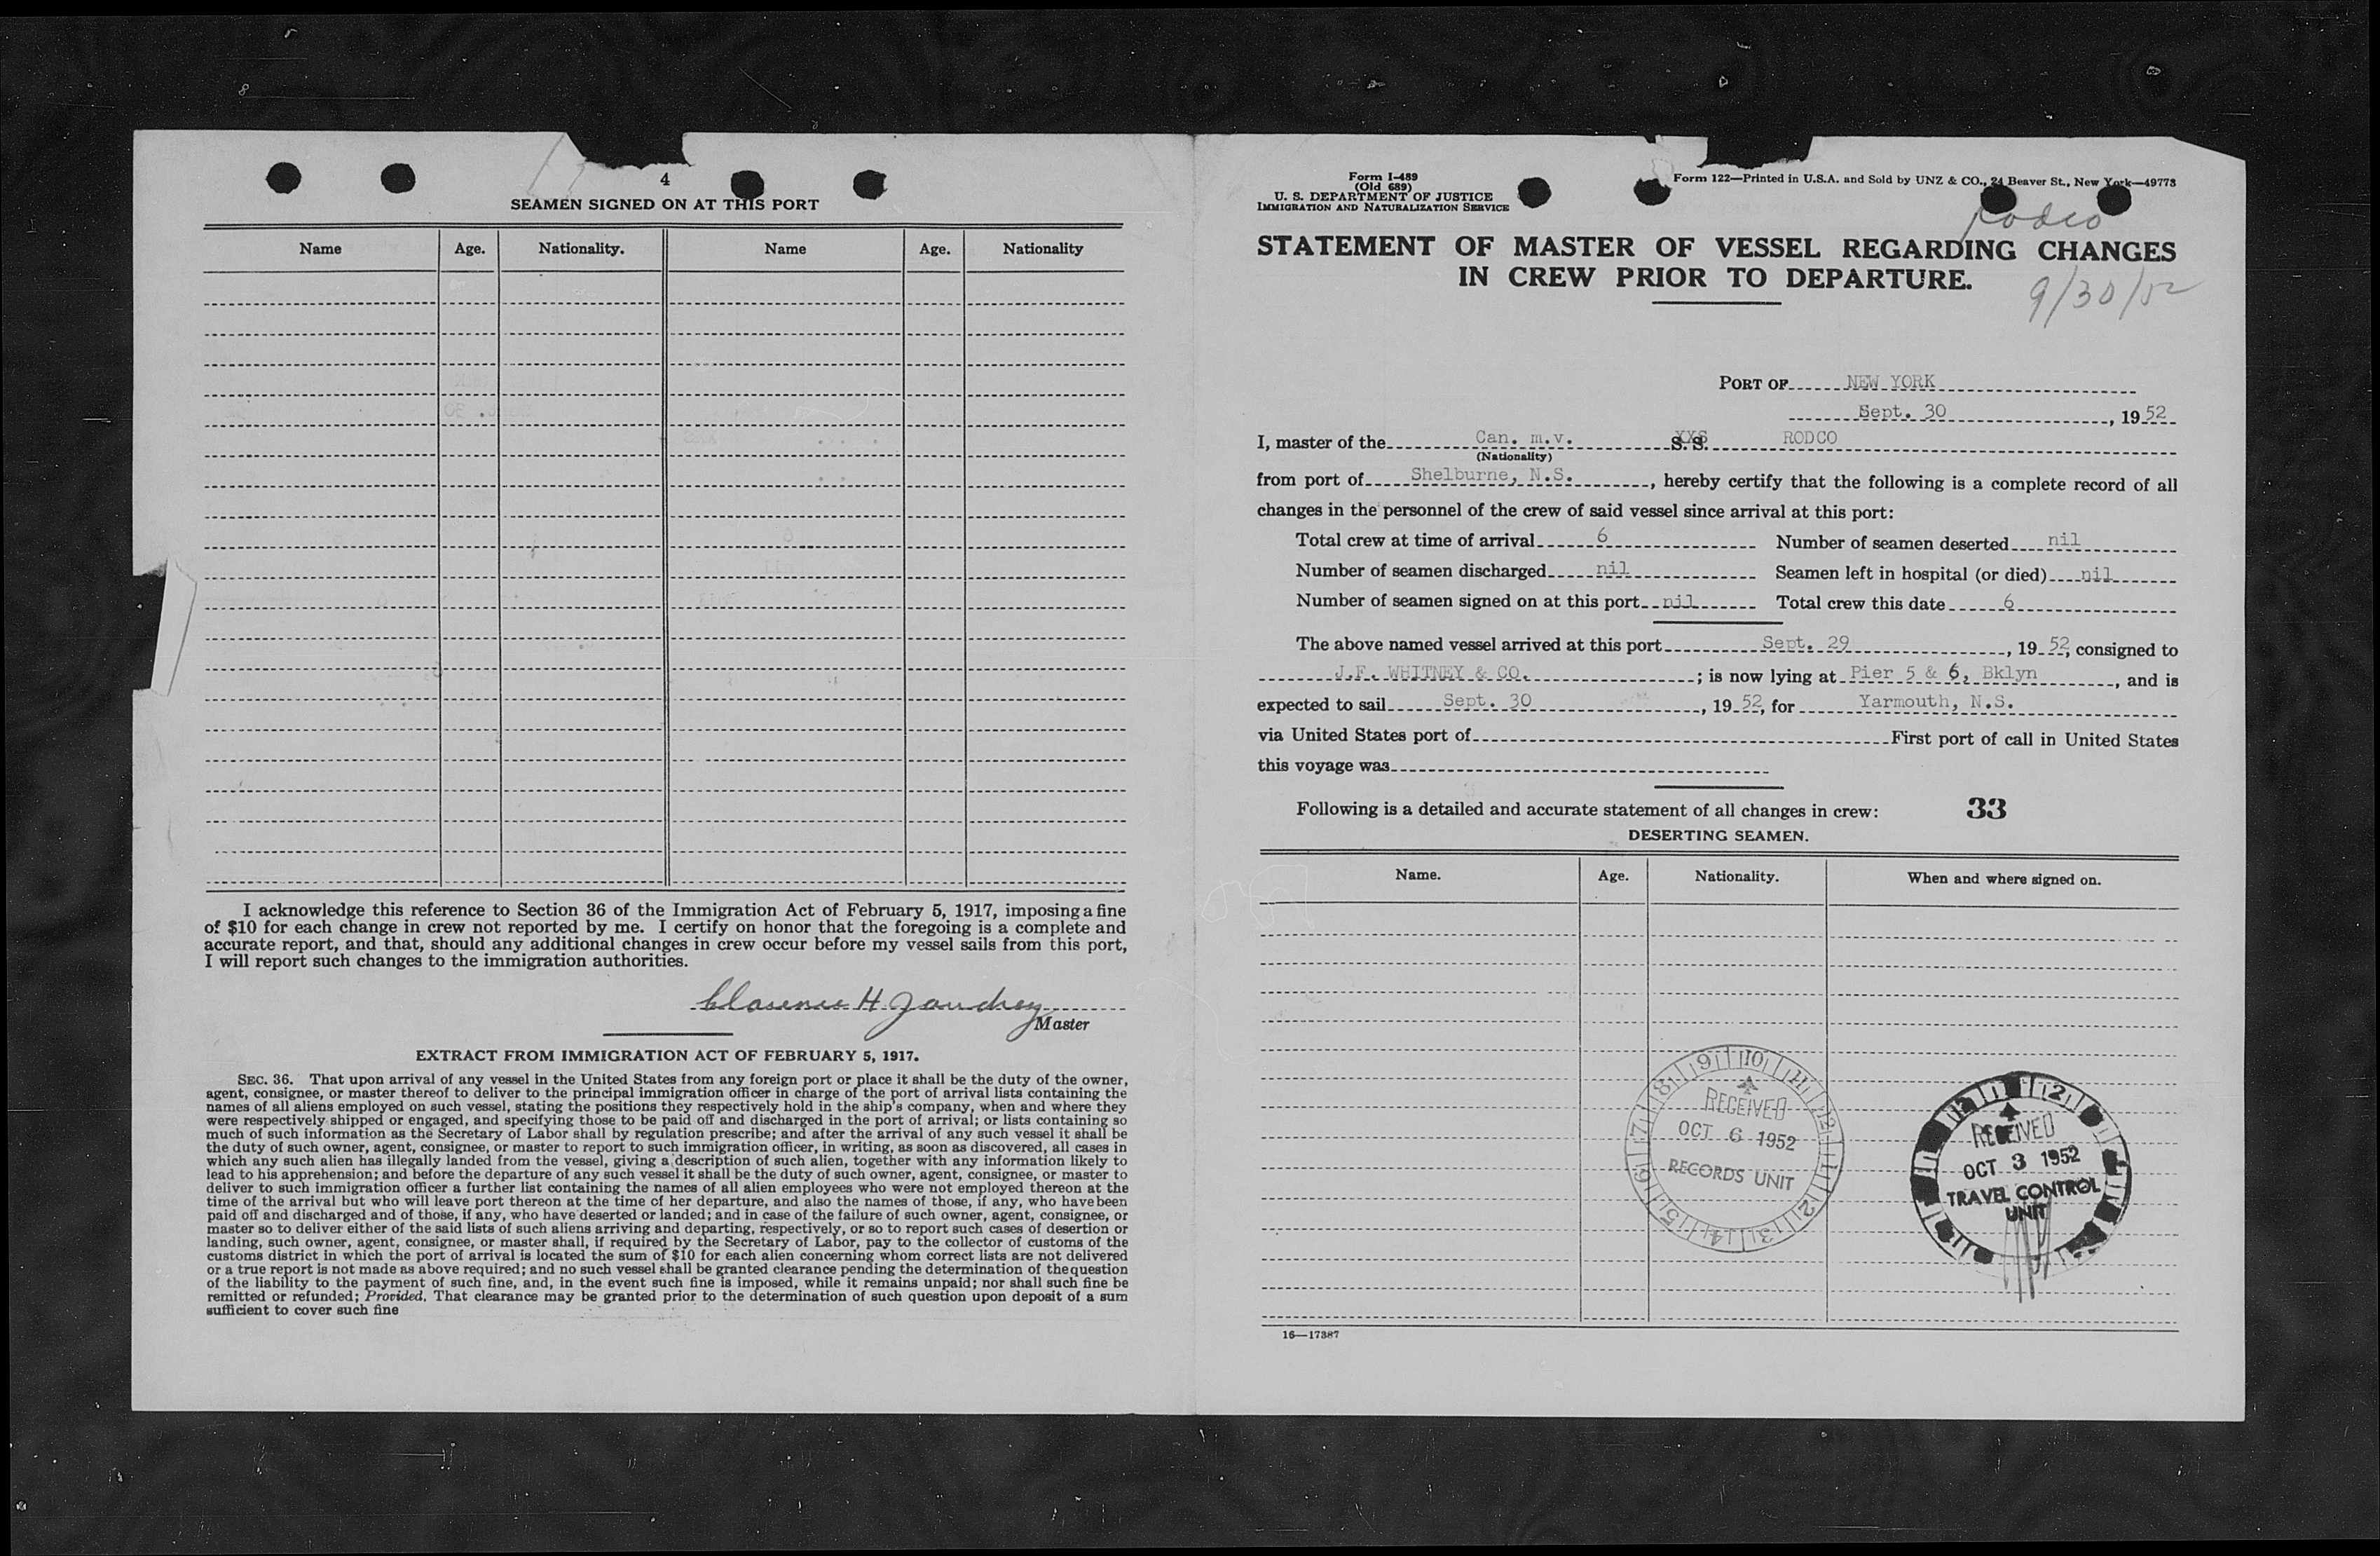 4
SEAMEN SIGNED ON AT THIS PORT
Name Age. Nationality. Name Age. Nationality
I acknowledge this reference to Section 36 of the Immigration Act of February 5, 1917, imposing a fine
of $10 for each change in crew not reported by me. I certify on honor that the foregoing is a complete and
accurate report, and that, should any additional changes in crew occur before my vessel sails from this port,
I will report such changes to the immigration authorities.
Clarence H
Master
EXTRACT FROM IMMIGRATION ACT OF FEBRUARY 5, 1917.
SEC. 36. That upon arrival of any vessel in the United States from any foreign port or place it shall be the duty of the owner,
agent, consignee, or master thereof to deliver to the principal immigration officer in charge of the port of arrival lists containing the
names of all aliens employed on such vessel, stating the positions they respectively hold in the ship's company, when and where they
were respectively shipped or engaged, and specifying those to be paid off and discharged in the port of arrival; or lists containing so
much of such information as the Secretary of Labor shall by regulation prescribe; and after the arrival of any such vessel it shall be
the duty of such owner, agent, consignee, or master to report to such immigration officer, in writing, as soon as discovered, all cases in
which any such alien has illegally landed from the vessel, giving a description of such alien, together with any information likely to
lead to his apprehension; and before the departure of any such vessel it shall be the duty of such owner, agent, consignee, or master to
deliver to such immigration officer a further list containing the names of all alien employees who were not employed thereon at the
time of the arrival but who will leave port thereon at the time of her departure, and also the names of those, if any, who have been
paid off and discharged and of those, if any, who have deserted or landed; and in case of the failure of such owner, agent, consignee, or
master so to deliver either of the said lists of such aliens arriving and departing, respectively, or so to report such cases of desertion or
landing, such owner, agent, consignee, or master shall, if required by the Secretary of Labor, pay to the collector of customs of the
customs district in which the port of arrival is located the sum of $10 for each alien concerning whom correct lists are not delivered
or a true report is not made as above required; and no such vessel shall be granted clearance pending the determination of the question
of the liability to the payment of such fine, and, in the event such fine is imposed, while it remains unpaid; nor shall such fine be
remitted or refunded; Provided, That clearance may be granted prior to the determination of such question upon deposit of a sum
sufficient to cover such fine
Form I-489
(Old 689)
U. S. DEPARTMENT OF JUSTICE
IMMIGRATION AND NATURALIZATION SERVICE
Form 122—Printed in U.S.A. and Sold by UNZ & CO., 24 Beaver St., New York—49773
Rodco
STATEMENT OF MASTER OF VESSEL REGARDING CHANGES
IN CREW PRIOR TO DEPARTURE.
9/30/52
PORT OF NEW YORK
Sept. 30, 1952
I, master of the Can. m.v. S.S. RODCO
(Nationality)
from port of Shelburne, N.S., hereby certify that the following is a complete record of all
changes in the personnel of the crew of said vessel since arrival at this port:
Total crew at time of arrival 6 Number of seamen deserted nil
Number of seamen discharged nil Seamen left in hospital (or died) nil
Number of seamen signed on at this port nil Total crew this date 6
The above named vessel arrived at this port Sept. 29, 1952, consigned to
J.F. WHITNEY & CO.; is now lying at Pier 5 & 6, Bklyn, and is
expected to sail Sept. 30, 1952, for Yarmouth, N.S.
via United States port of First port of call in United States
this voyage was
Following is a detailed and accurate statement of all changes in crew: 33
DESERTING SEAMEN.
Name. Age. Nationality. When and where signed on.
RECEIVED
OCT 6 1952
RECORDS UNIT
RECEIVED
OCT 3 1952
TRAVEL CONTROL
UNIT
16—17387